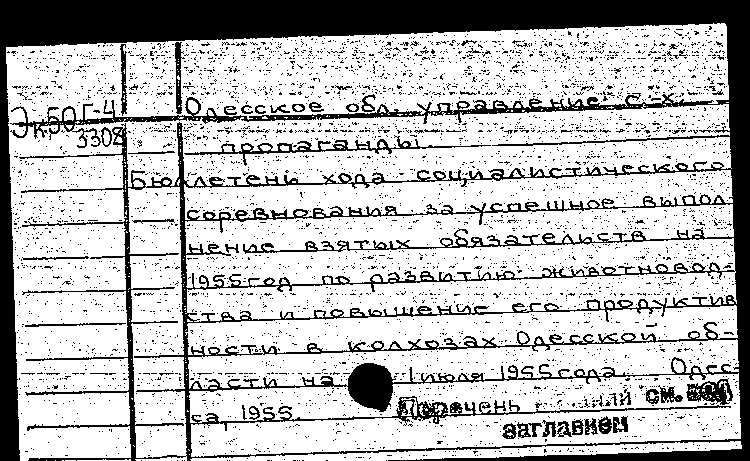 Эк50Г-4
3308
Одесское обл. управление с.-х.
пропаганды.
Бюллетень хода социалистического
соревнования за успешное выпол-
нение взятых обязательств на
1955 год по развитию животновод-
ства и повышение его продуктив
ности в колхозах Одесской об-
ласти на 1 июля 1955 года. Одес-
са, 1955.
Перечень см. под
заглавием